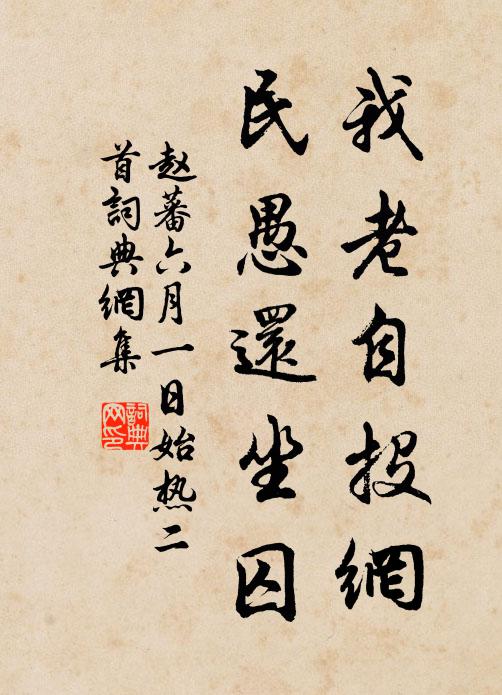 我老自投網
民愚還坐囚
赵蕃六月一日始热二
首詞典網集
詞典
网印